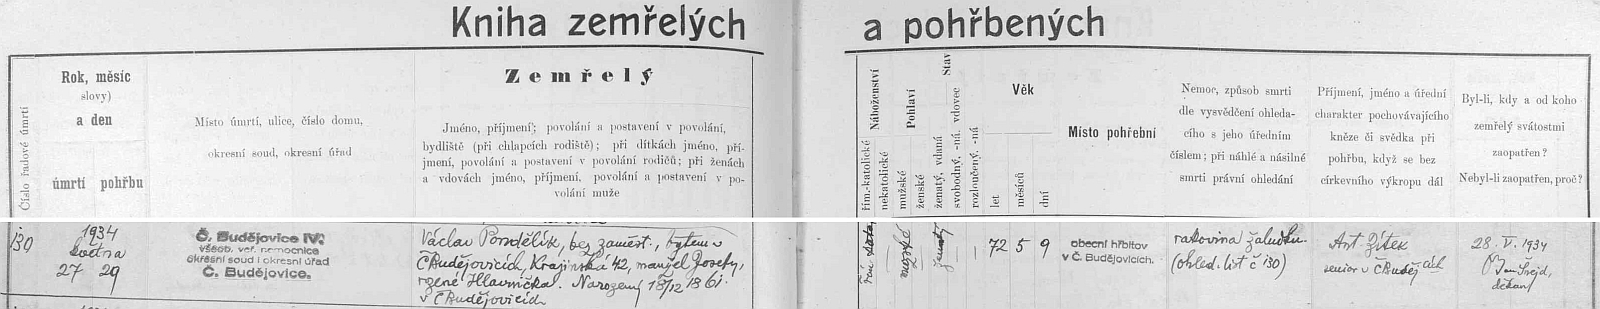 Kniha zemřelých a pohřbených
Číslo řadové úmrtí
Rok, měsíc
slovy)
a den
úmrtí pohřbu
Místo úmrtí, ulice, číslo domu,
okresní soud, okresní úřad
Zemřelý
Jméno, příjmení; povolání a postavení v povolání,
bydliště (při chlapcích rodiště); při dítkách jméno, pří-
jmení, povolání a postavení v povolání rodičů; při ženách
a vdovách jméno, příjmení, povolání a postavení v po-
volání muže
Náboženství
řím.-katolické
nekatolické
Pohlaví
mužské
ženské
Stav
ženatý, vdaná
svobodný, -ná, vdovec
rozloučený, -ná
Věk
let
měsíců
dní
Místo pohřební
Nemoc, způsob smrti
dle vysvědčení ohleda-
cího s jeho úředním
číslem; při náhlé a násilné
smrti právní ohledání
Příjmení, jméno a úřední
charakter pochovávajícího
kněze či svědka při
pohřbu, když se bez
církevního výkropu dál
Byl-li, kdy a od koho
zemřelý svátostmi
zaopatřen?
Nebyl-li zaopatřen, proč?
130
1934
května
27 29
Č. Budějovice IV.
všeob. veř. nemocnice
okresní soud i okresní úřad
Č. Budějovice.
Václav Pondělík, bez zaměst., bytem v
Č Budějovicích, Krajinská 42, manžel Josefy,
rozené Hlavničkal. Narozený 18/12 1861
v Č Budějovicích
mužské
ženatý
72 5 9
obecní hřbitov
v Č. Budějovicích.
rakovina žaludku
(ohled. list č 130)
Ant. Zítek
senior v Č Budějcích
28. V. 1934
Jan Šrejd,
děkan